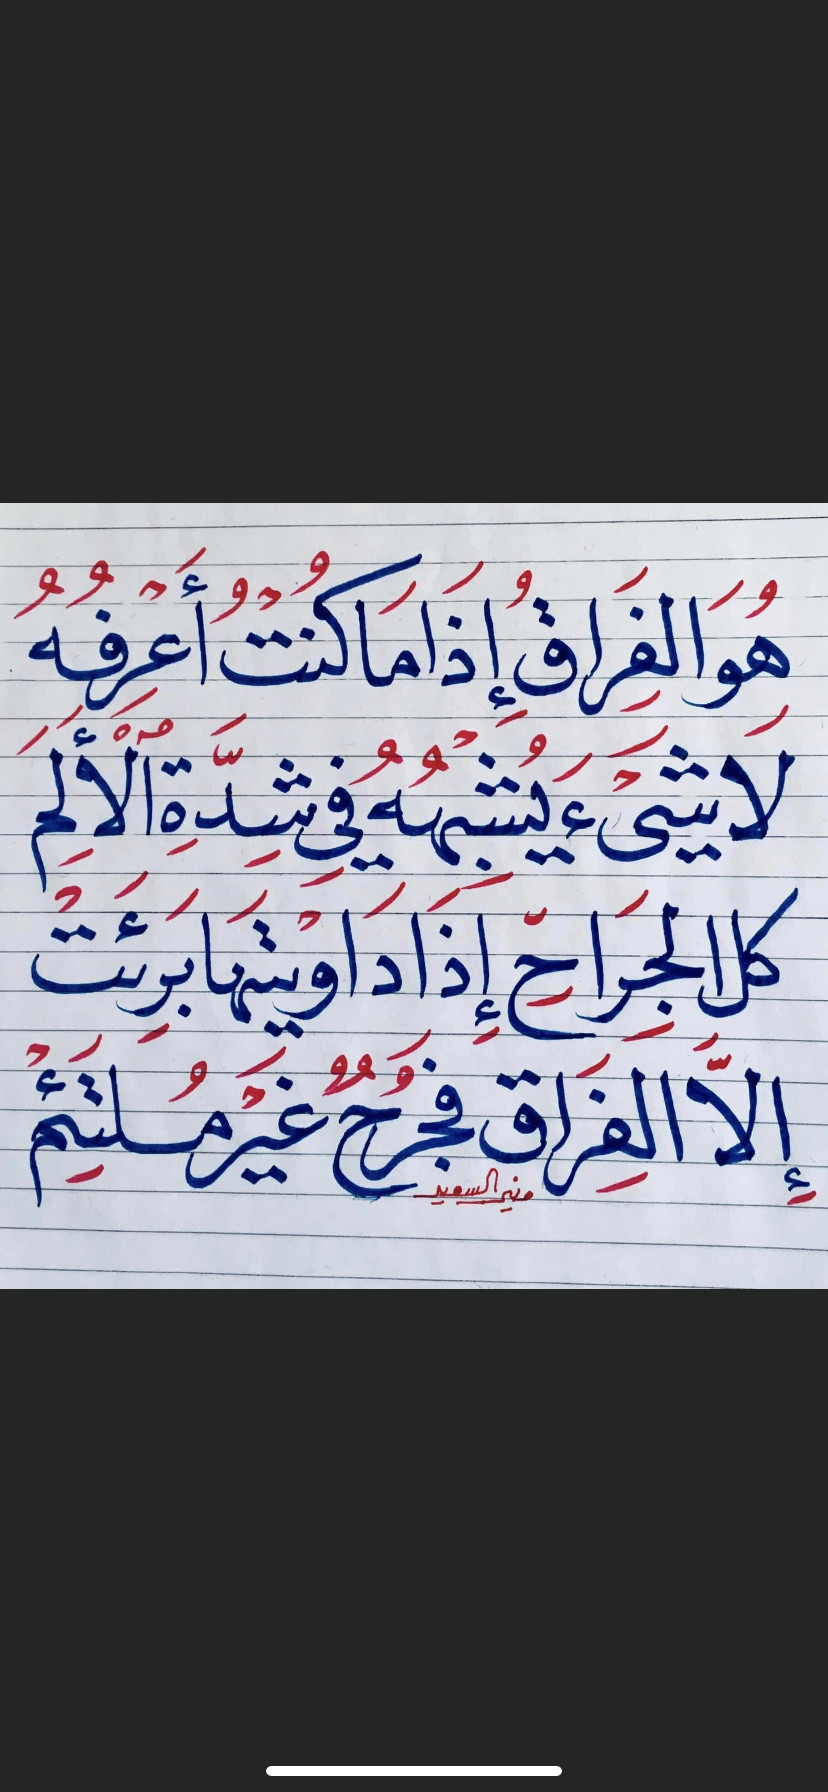 هُوَ الفِرَاقُ إِذَا مَا كُنْتُ أَعْرِفُهُ
لَا شَيْءَ يُشْبِهُهُ فِي شِدَّةِ الْأَلَمِ
كل الجِرَاحِ إِذَا دَاوَيْتَهَا بَرِئَتْ
إِلَّا الفِرَاق فَجُرْحٌ غَيْرَ مُلتَئِمْ
منير السويد